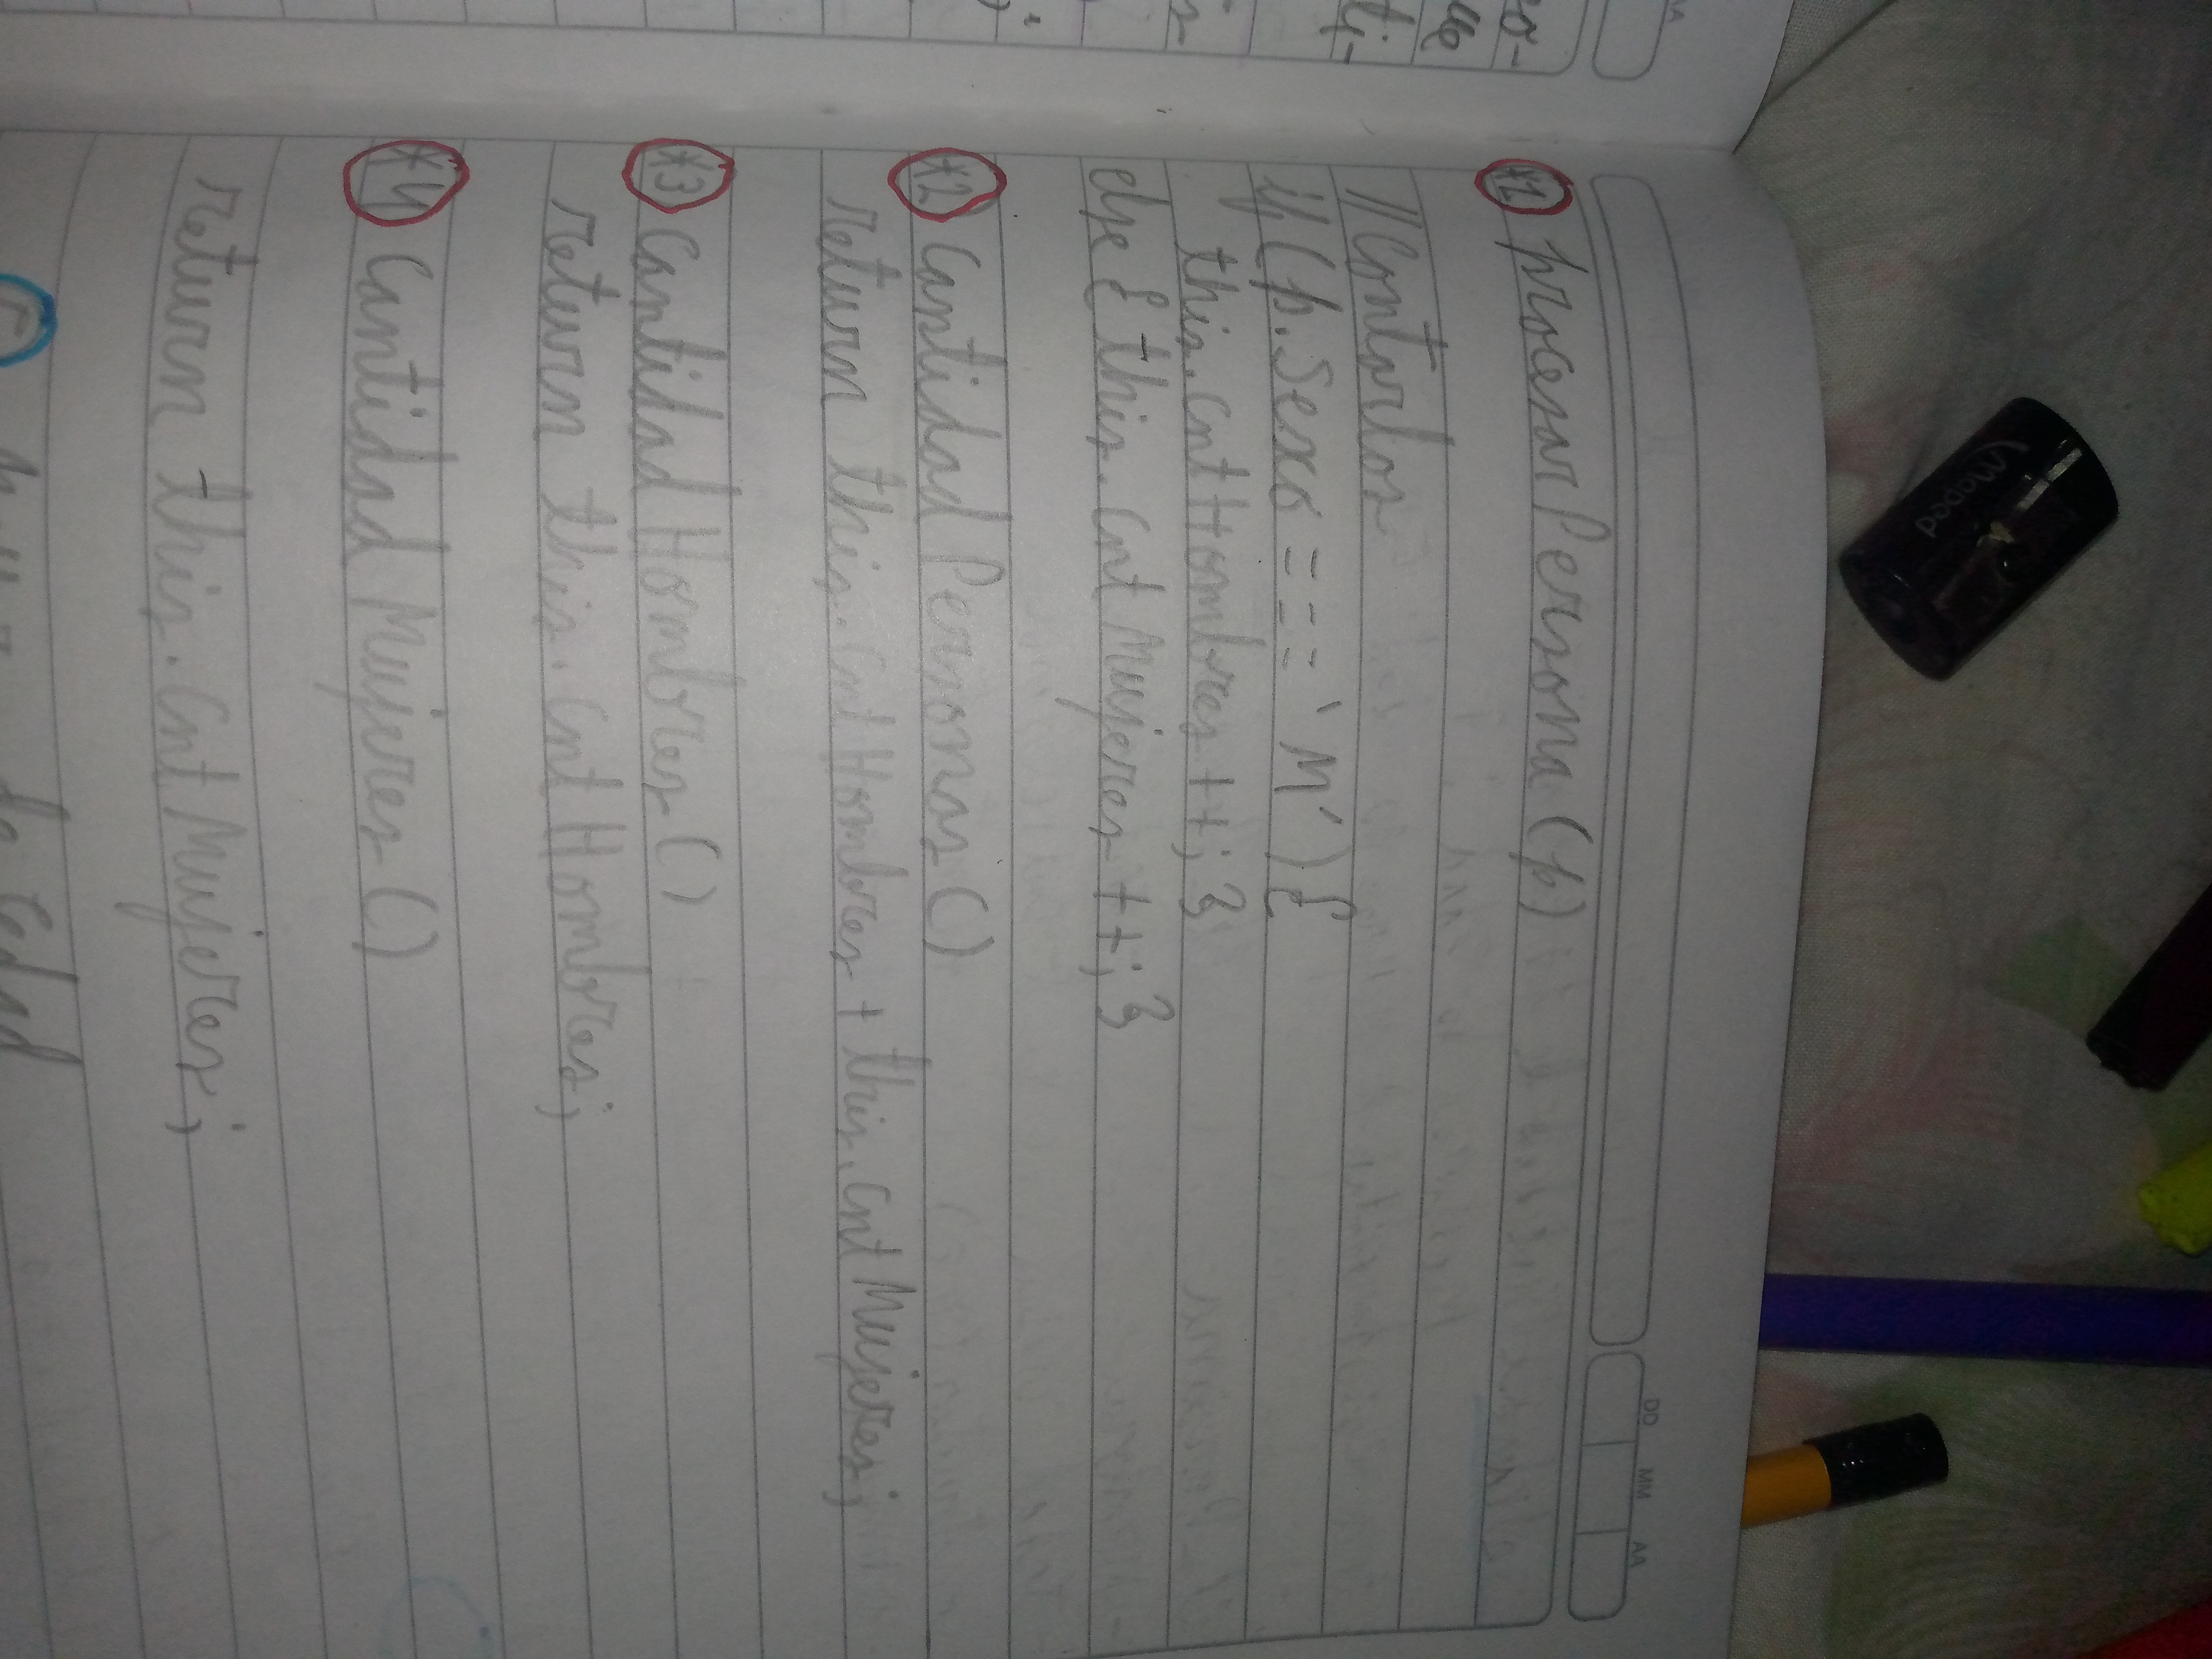 Maped
DD MM AA
AA
*1 procesarPersona (p)
//contarlos
if (p.Sexo === 'M') {
this.cntHombres ++; }
else { this.cntMujeres ++; }
*2 CantidadPersonas ()
return this.cntHombres + this.cntMujeres;
*3 CantidadHombres ()
return this.cntHombres;
*4 CantidadMujeres ()
return this.cntMujeres;
de edad